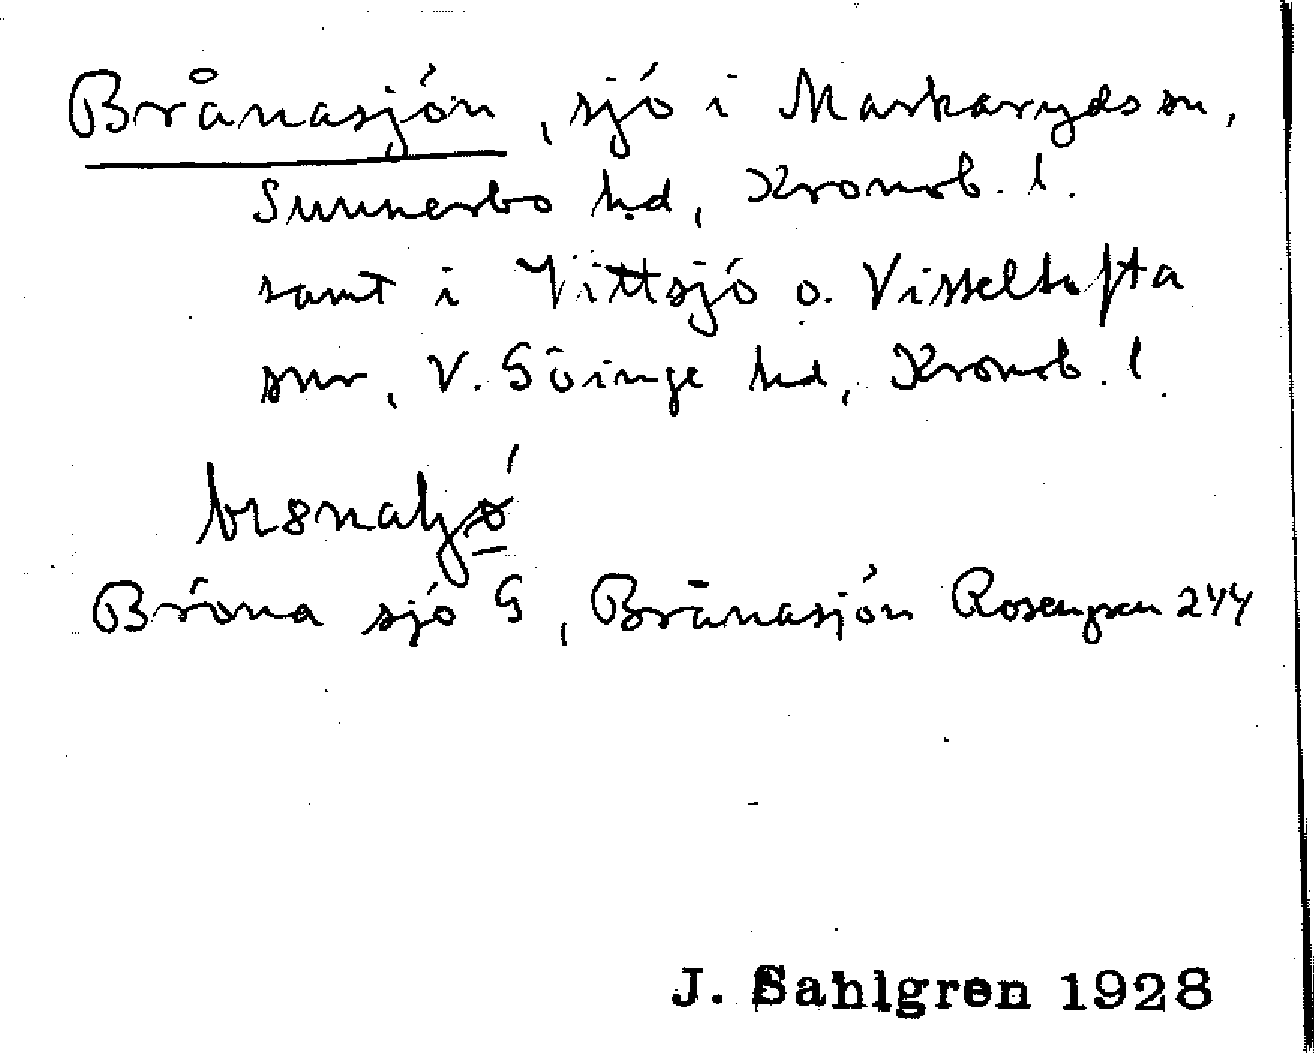 Brånasjön, sjö i Markaryds sn,
Sunnerbo hd, Kronob. l.
samt i Vittsjö o. Visseltofta
snr, V. Göinge hd, Kronob. l.
Bröna sjö G, Brånasjön Rosengren 244
J. Sahlgren 1928